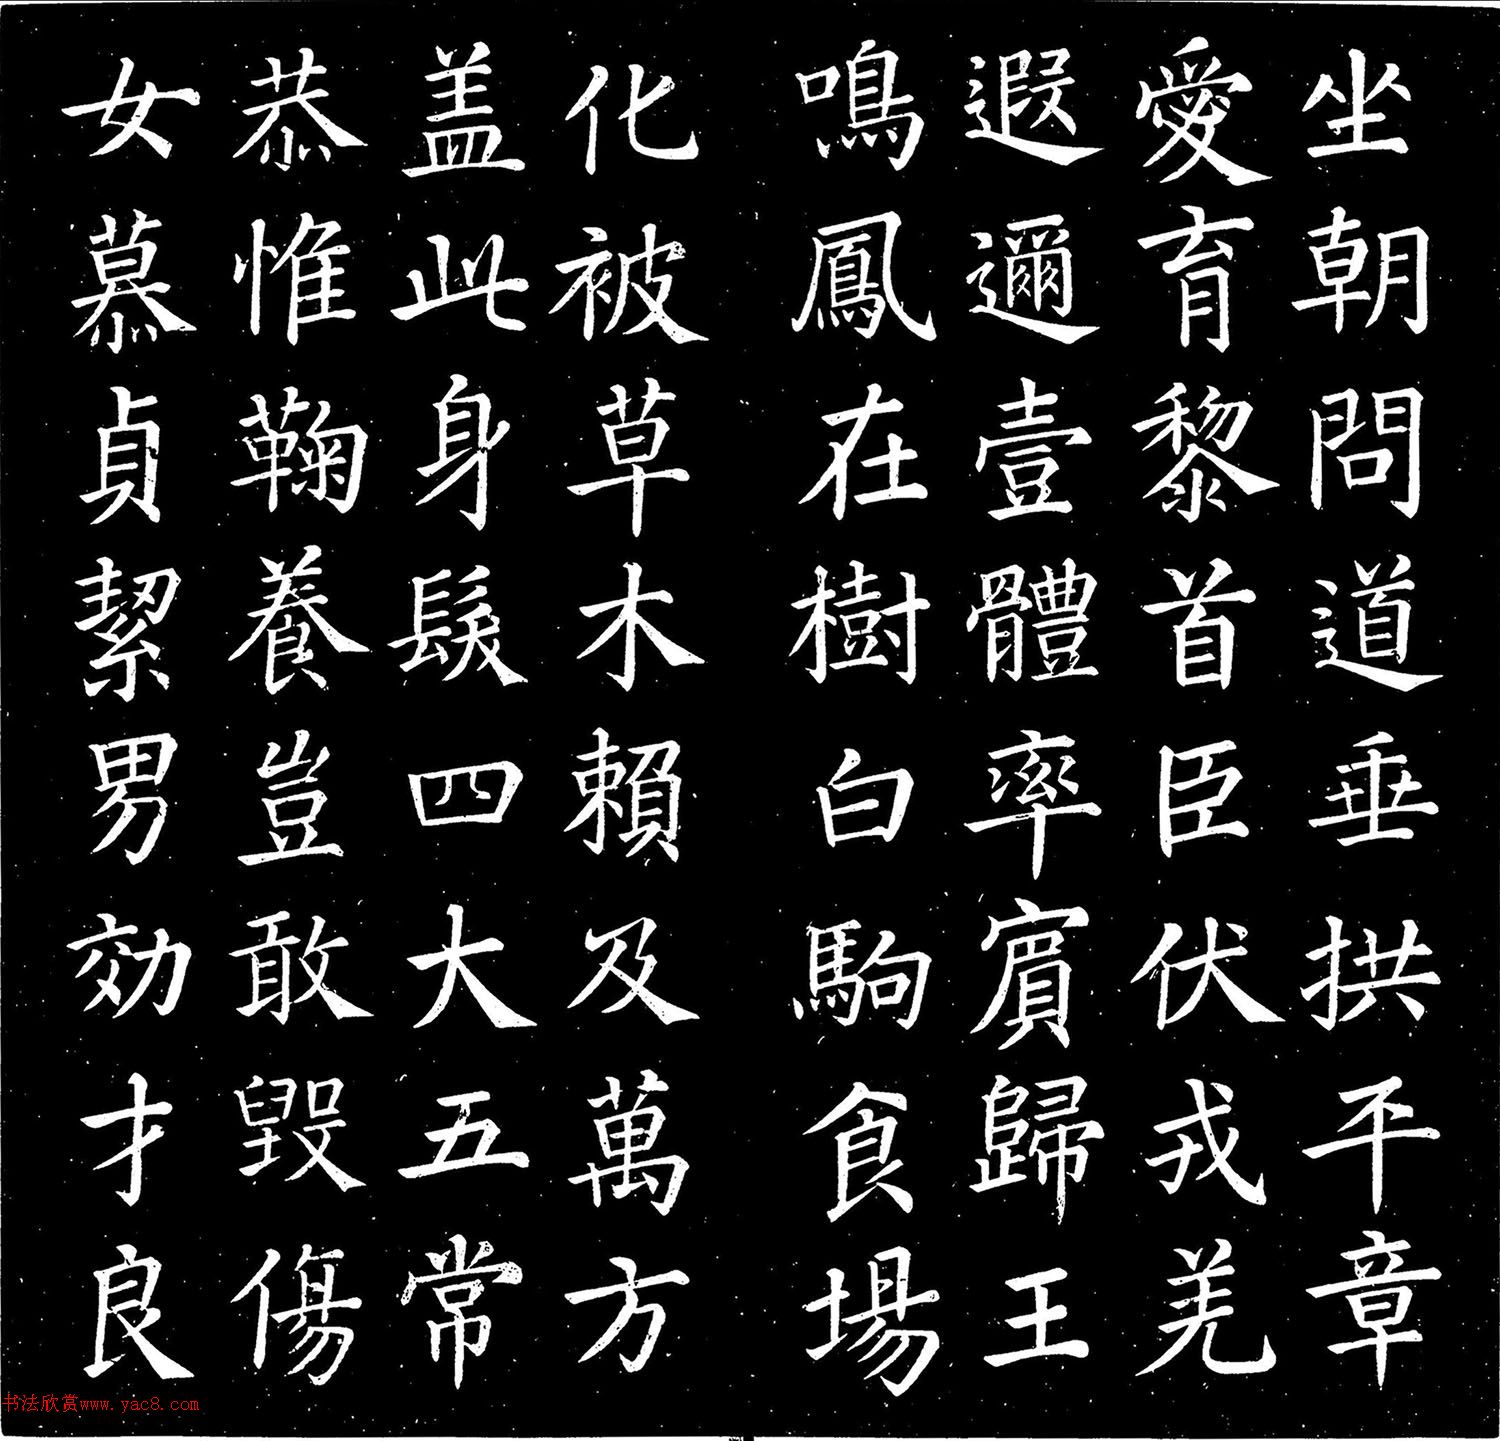 坐朝問道垂拱平章
愛育黎首臣伏戎羌
遐邇壹體率賓歸王
鳴鳳在樹白駒食場
化被草木賴及萬方
盖此身髮四大五常
恭惟鞠養豈敢毀傷
女慕貞絜男効才良
书法欣赏www.yac8.com